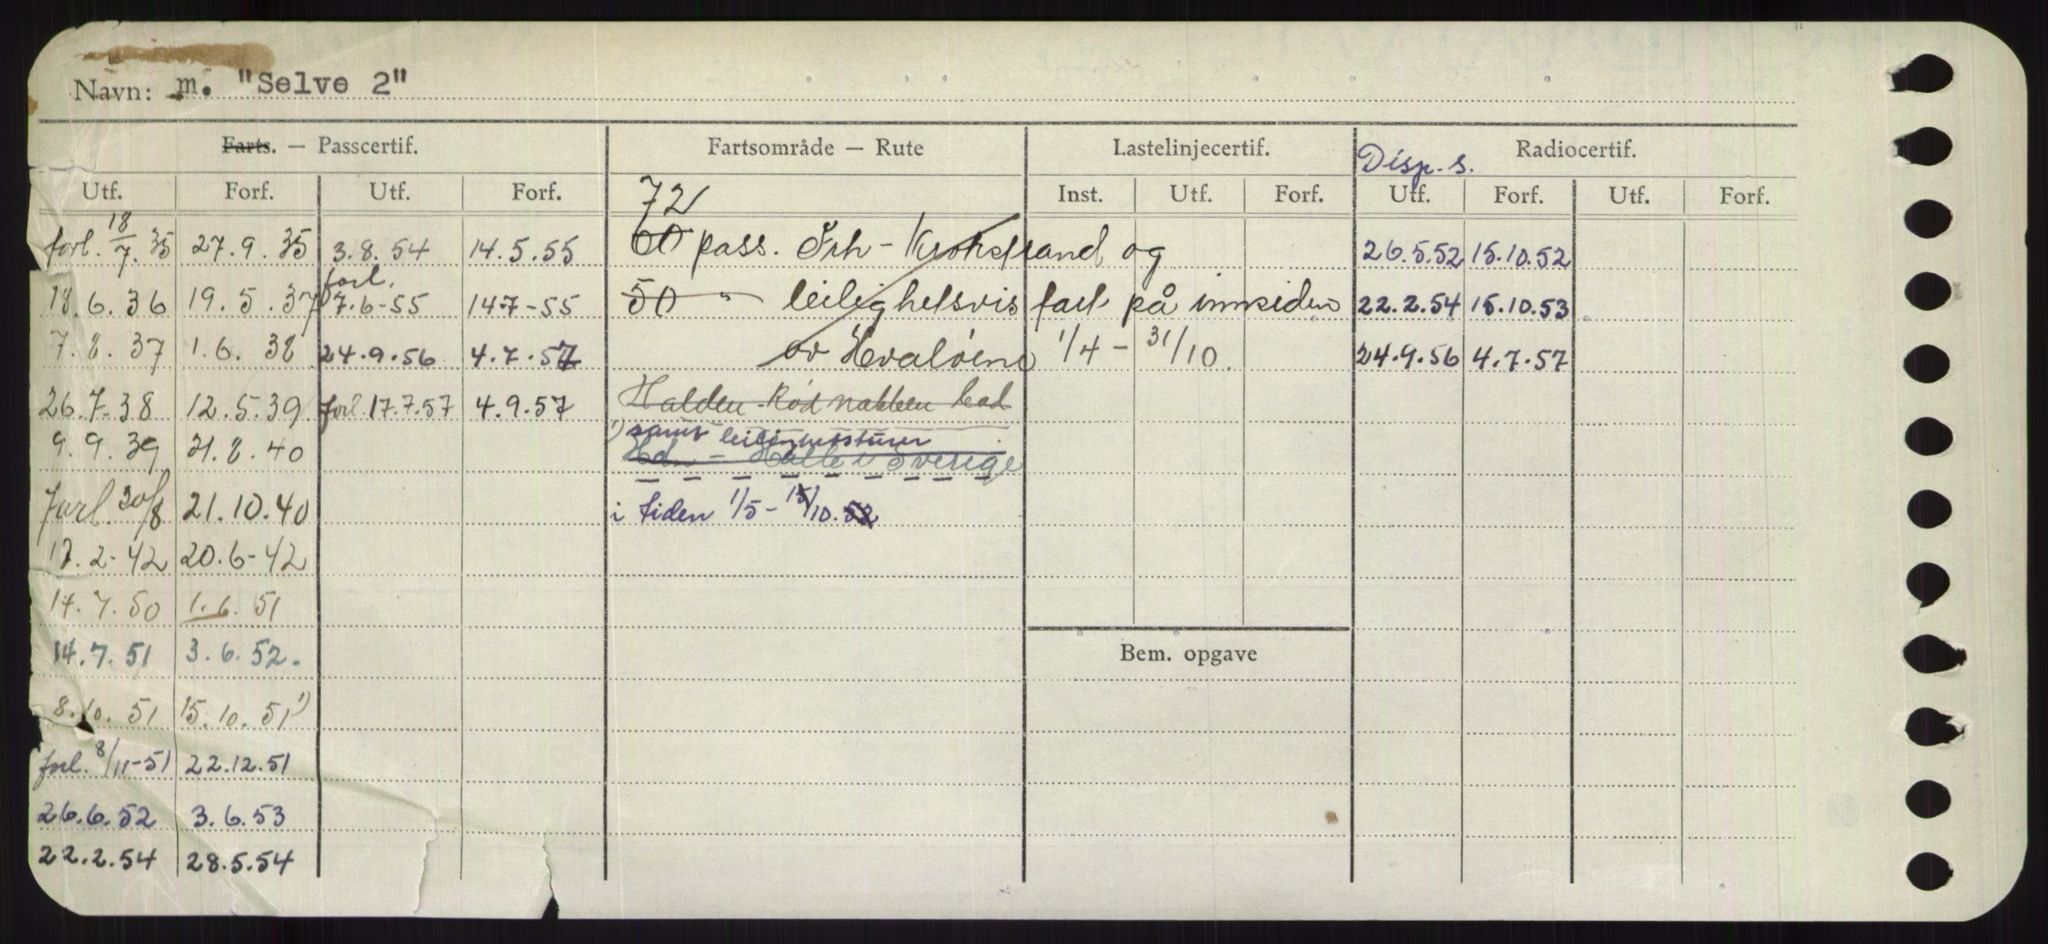 Navn: m. "Selve 2"
Farts. — Passcertif. Fartsområde — Rute Lastelinjecertif. Radiocertif.
Disp. s.
Utf. Forf. Utf. Forf. 72 Inst. Utf. Forf. Utf. Forf. Utf. Forf.
forl. 18/7. 35 27.9.35 3.8.54 14.5.55 60 pass. Frh - Krokstrand og 26.5.52 15.10.52
18.6.36 19.5.37 forl. 7.6-55 14.7-55 50 " leilighetsvis fart på innsiden 22.2.54 15.10.53
7.8.37 1.6.38 24.9.56 4.7.57 av Hvalöene 1/4 - 31/10. 24.9.56 4.7.57
26.7.38 12.5.39 forl. 17.7.57 4.9.57 Halden - Rödnabben bad
9.9.39 21.8.40 1) samt leilighetsturer
Hdn - Hälle i Sverige
forl. 20/8 21.10.40 i tiden 1/5 - 15/10.52
17.2-42 20.6-42
14.7.50 1.6.51
14.7.51 3.6.52.
8.10.51 15.10.51 1)
Bem. opgave
forl. 8/11-51 22.12.51
26.6.52 3.6.53
22.2.54 28.5.54